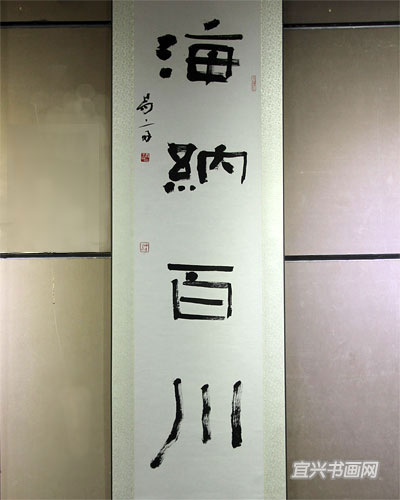 海納百川
宜兴书画网